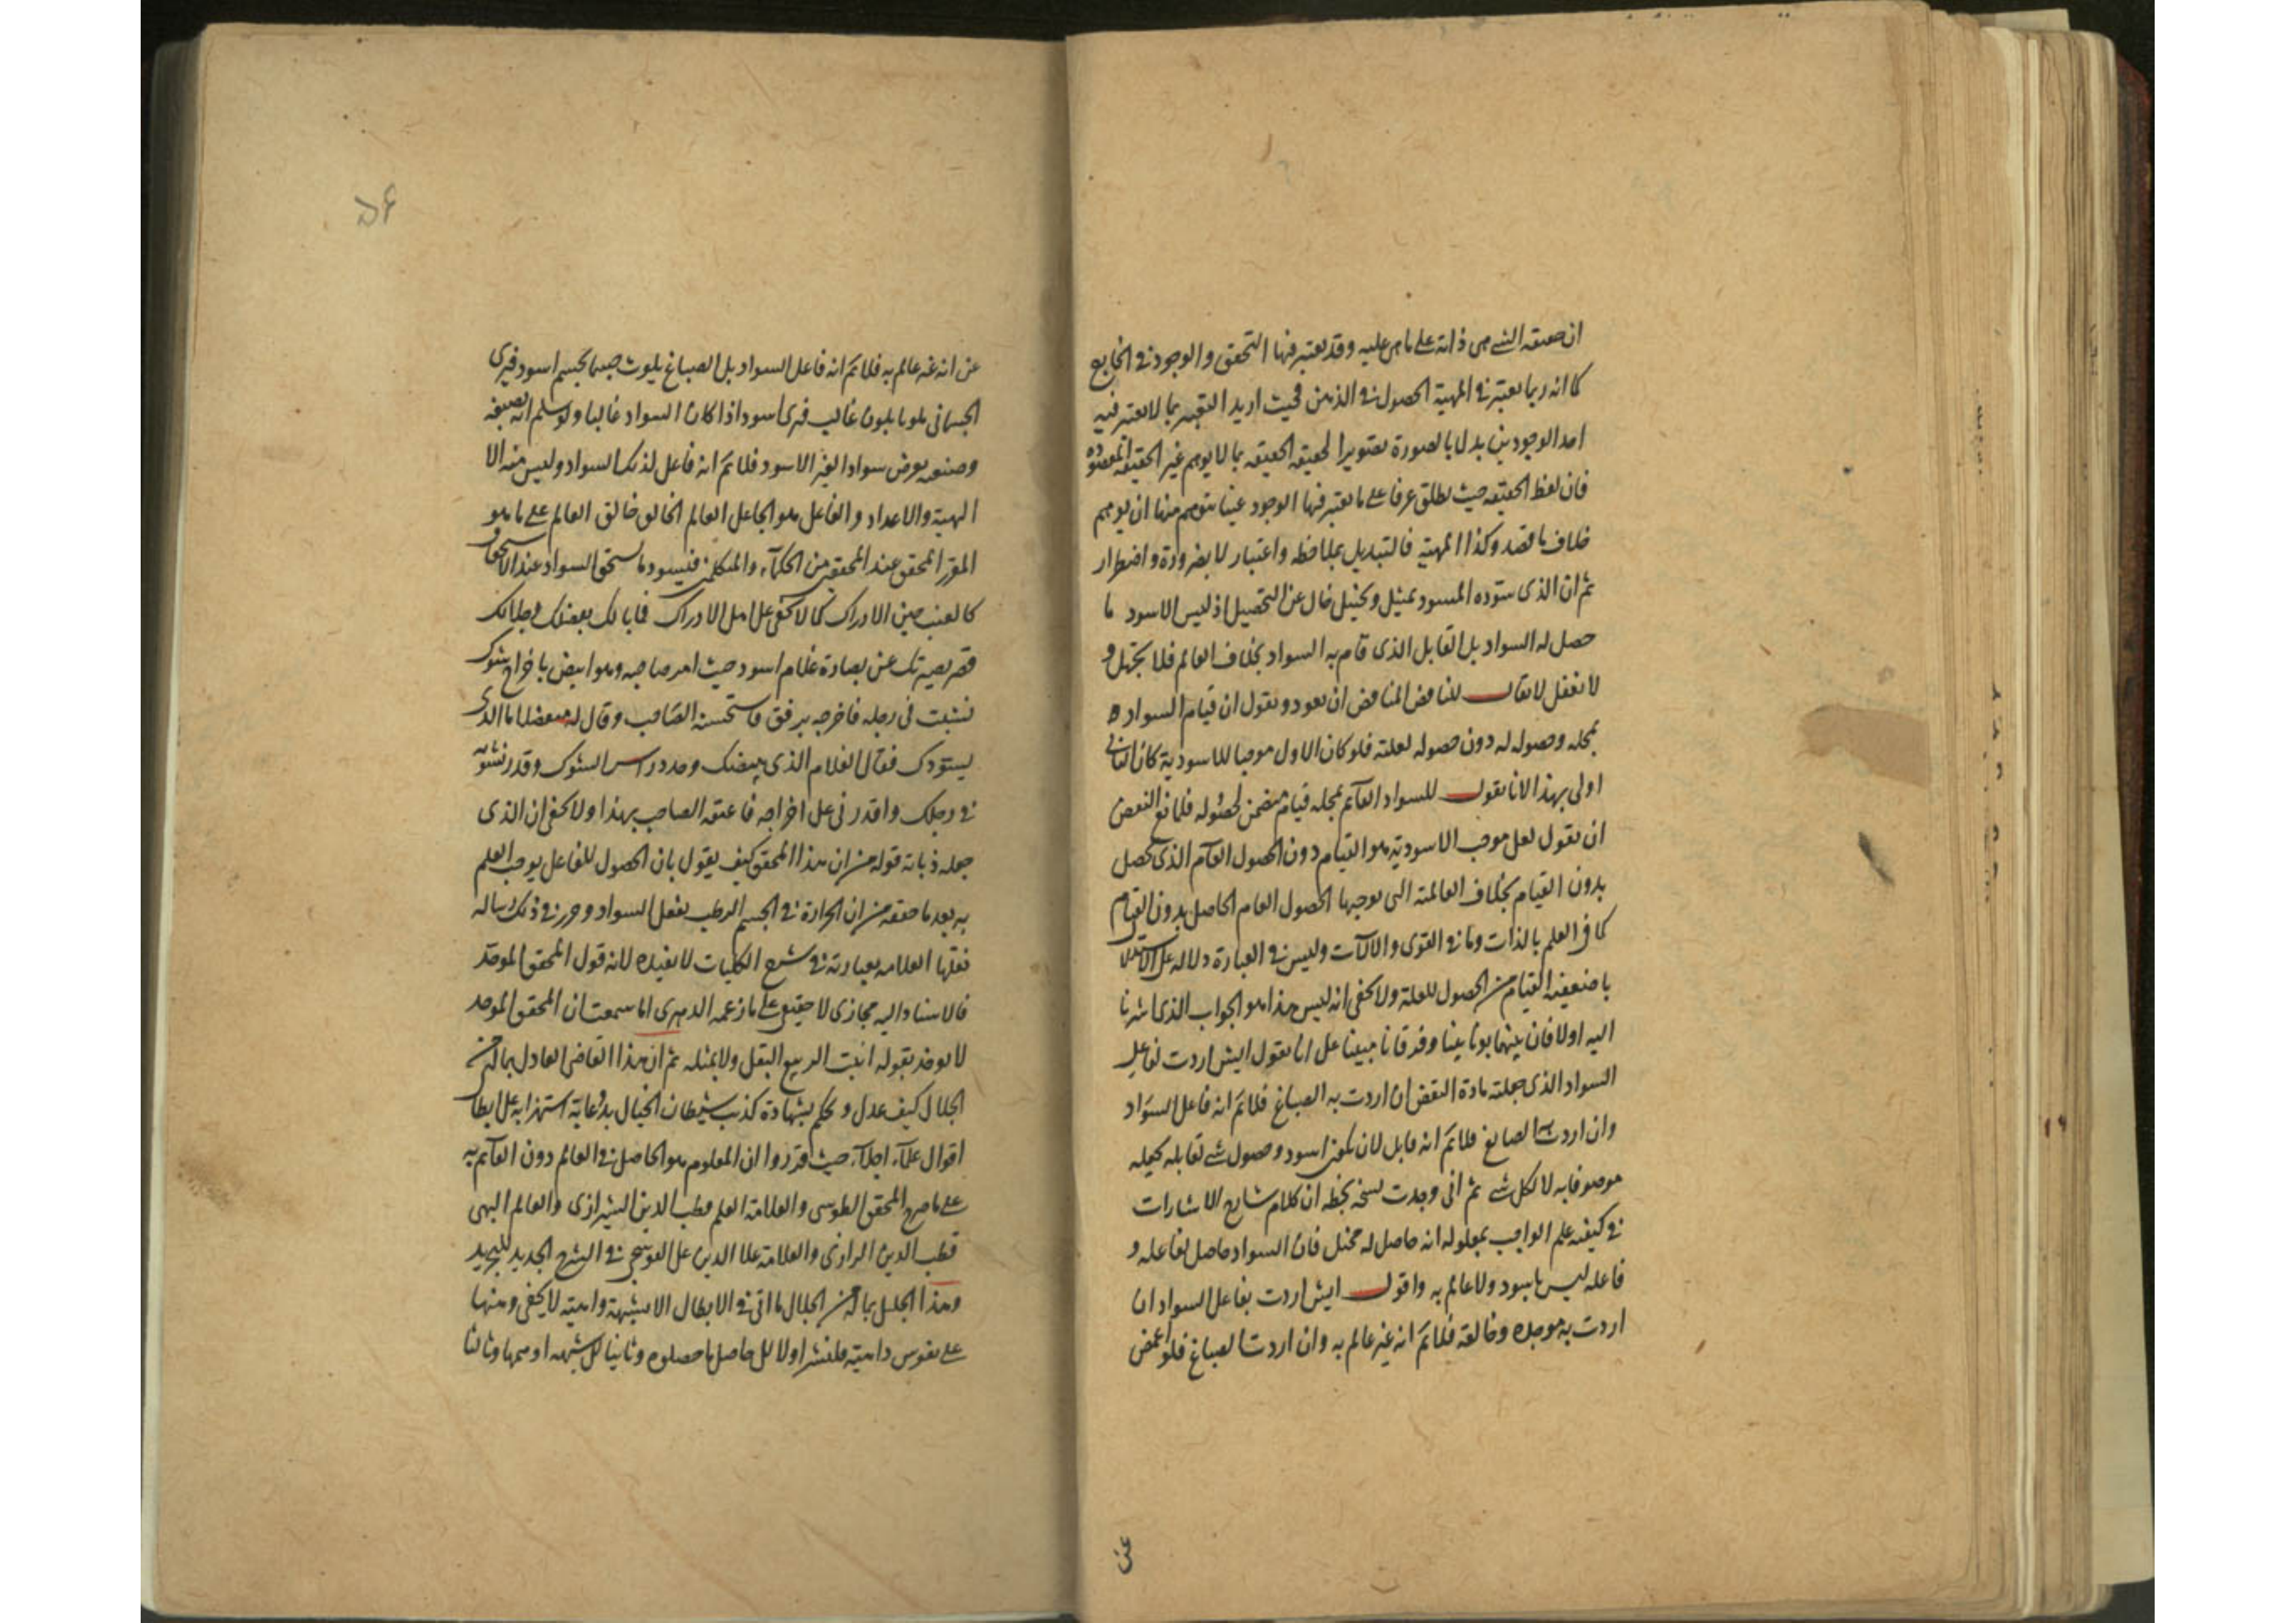 ان حقيقة الشے هى ذاته على ما هى عليه وقد يعتبر فيها التحقق والوجود فى الخارج
كما انه ربما يعتبر فى المهية الحصول فى الذهن فحيث اريد التعبير بما لا يعتبر فيه
احد الوجودين بدل بالصورة تصويرا لحقيقة الحقيقة بما لا يوهم غير الحقيقة المقصودة
فان لفظ الحقيقة حيث يطلق عرفا على ما يعتبر فيها الوجود عينا يتوهم منها ان يوهم
خلاف ما قصد وكذا المهية فالتبديل بملاحظة واعتبار لا بضرورة واضطرار
ثم ان الذى سوده المسود تمثيل وتخييل خال عن التحصيل اذ ليس الاسود ما
حصل له السواد بل القابل الذى قام به السواد بخلاف العالم فلا تجهل و
لا تغفل لا يقال للناقض المناقض ان يعود ويقول ان قيام السواد
بمحله وحصوله له دون حصوله لعلته فلو كان الاول موجبا للاسودية كان الثانى
اولى بهذا لانا نقول للسواد القائم بمحله قيام متضمن لحصوله فلمانع النقض
ان يقول لعل موجب الاسودية هو القيام دون الحصول العام الذى يحصل
بدون القيام بخلاف العالمية التى يوجبها الحصول العام الحاصل بدون القيام
كما فى العلم بالذات وما فى القوى والالات وليس فى العبارة دلالة على الاستدلال
باضعفية القيام من الحصول للعلة ولا يخفى انه ليس هذا هو الجواب الذى اشرنا
اليه اولا فان بينهما بونا بينا وفرقانا مبينا على انا نقول ايش اردت بفاعل
السواد الذى جعلته مادة النقض ان اردت به الصباغ فلا نم انه فاعل السواد
وان اردت به الصابغ فلا نم انه قابل لان يكون اسود وحصول شے لقابله يجعله
موصوفا به لا لكل شے ثم انى وجدت نسخة بخطه ان كلام شارح الاشارات
فى كيفية علم الواجب بمعلوله انه حاصل له مختل فان السواد حاصل لفاعله و
فاعله ليس باسود ولا عالم به واقول ايش اردت بفاعل السواد ان
اردت به موجده وخالقه فلا نم انه غير عالم به وان اردت الصباغ فلو اغمض
عن
۵۶
عن انه غير عالم به فلا نم انه فاعل السواد بل الصباغ يلوث جسما بجسم اسود فيرى
الجسمانى ملونا بلون غالب فيرى اسود اذا كان السواد غالبا ولو سلم انه بصبغه
وصنعه يعرض سوادا لغير الاسود فلا نم انه فاعل لذلك السواد وليس منه الا
التهية والاعداد والفاعل هو الجاعل العالم الخالق خالق العالم على ما هو
المقرر المحقق عند المحققين من الحكماء والمتكلمين فيسود ما يستحق السواد عند الاستحقاق
كالعنب حين الادراك كما لا يخفى على اهل الادراك فما بالك
قصر بصيرتك عن بصارة غلام اسود حيث امر صاحبه وهو ابيض باخراج شوك
نشبت فى رجله فاخرجه برفق فاستحسنه الصاحب وقال له ما الذى
يسودك فقال الغلام الذى يبيضك وحدد راس الشوك وقدر نشوبه
فى رجلك واقدرنى على اخراجه فاعتقه الصاحب بهذا ولا يخفى ان الذى
جعله ذبابة قوله من ان هذا المحقق كيف يقول بان الحصول للفاعل يوجب العلم
به بعد ما حققه من ان الحرارة فى الجسم الرطب يفعل السواد وحرر فى ذلك رسالة
نقلها العلامة بعبارته فى شرح الكليات لا يفيده لانه قول المحقق الموحد
فالاسناد اليه مجازى لا حقيقى على ما زعمه الدهرى اما سمعت ان المحقق الموحد
لا يوخذ بقوله انبت الربيع البقل ولا بمثله ثم ان هذا القاضى العادل بما له من
الجلال كيف عدل وحكم بشهادة كذب شيطان الخيال بدعابة استهزا به على ابطال
اقوال علماء اجلاء حيث قرروا ان المعلوم هو الحاصل فى العالم دون القائم به
على ما صرح المحقق الطوسى والعلامة العلم قطب الدين الشيرازى والعالم البهى
قطب الدين الرازى والعلامة علا الدين على القوشجى فى الشرح الجديد للتجريد
وهذا الجليل بما له من الجلال ما اتى فى الابطال الا بشبهة واهية لا يخفى وهنها
على نفوس داهية فلنشر اولا الى حاصل ما حصلوه وثانيا الى شبهة اوهمها وثالثا